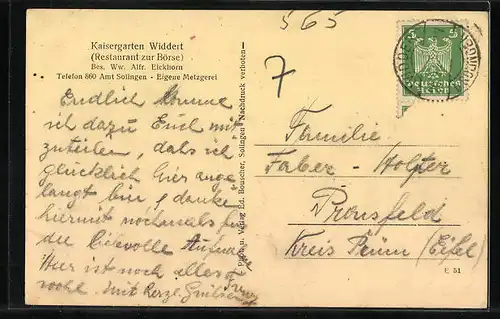 565
7
Kaisergarten Widdert
(Restaurant zur Börse)
Bes. Ww. Alfr. Eickhorn
Telefon 860 Amt Solingen - Eigene Metzgerei
Endlich komme
ich dazu Euch mit
zuteilen, dass ich
glücklich hier ange
langt bin, danke
hiermit nochmals für
die liebevolle Aufna
Hier ist noch alles
wohl. Mit herzl. Grüssen
Verlag Ed. Bouscher, Solingen Nachdruck verboten
5 5
Deutsches
Reich
Familie
Faber-Holper
Pronsfeld
Kreis Prüm (Eifel)
E 51